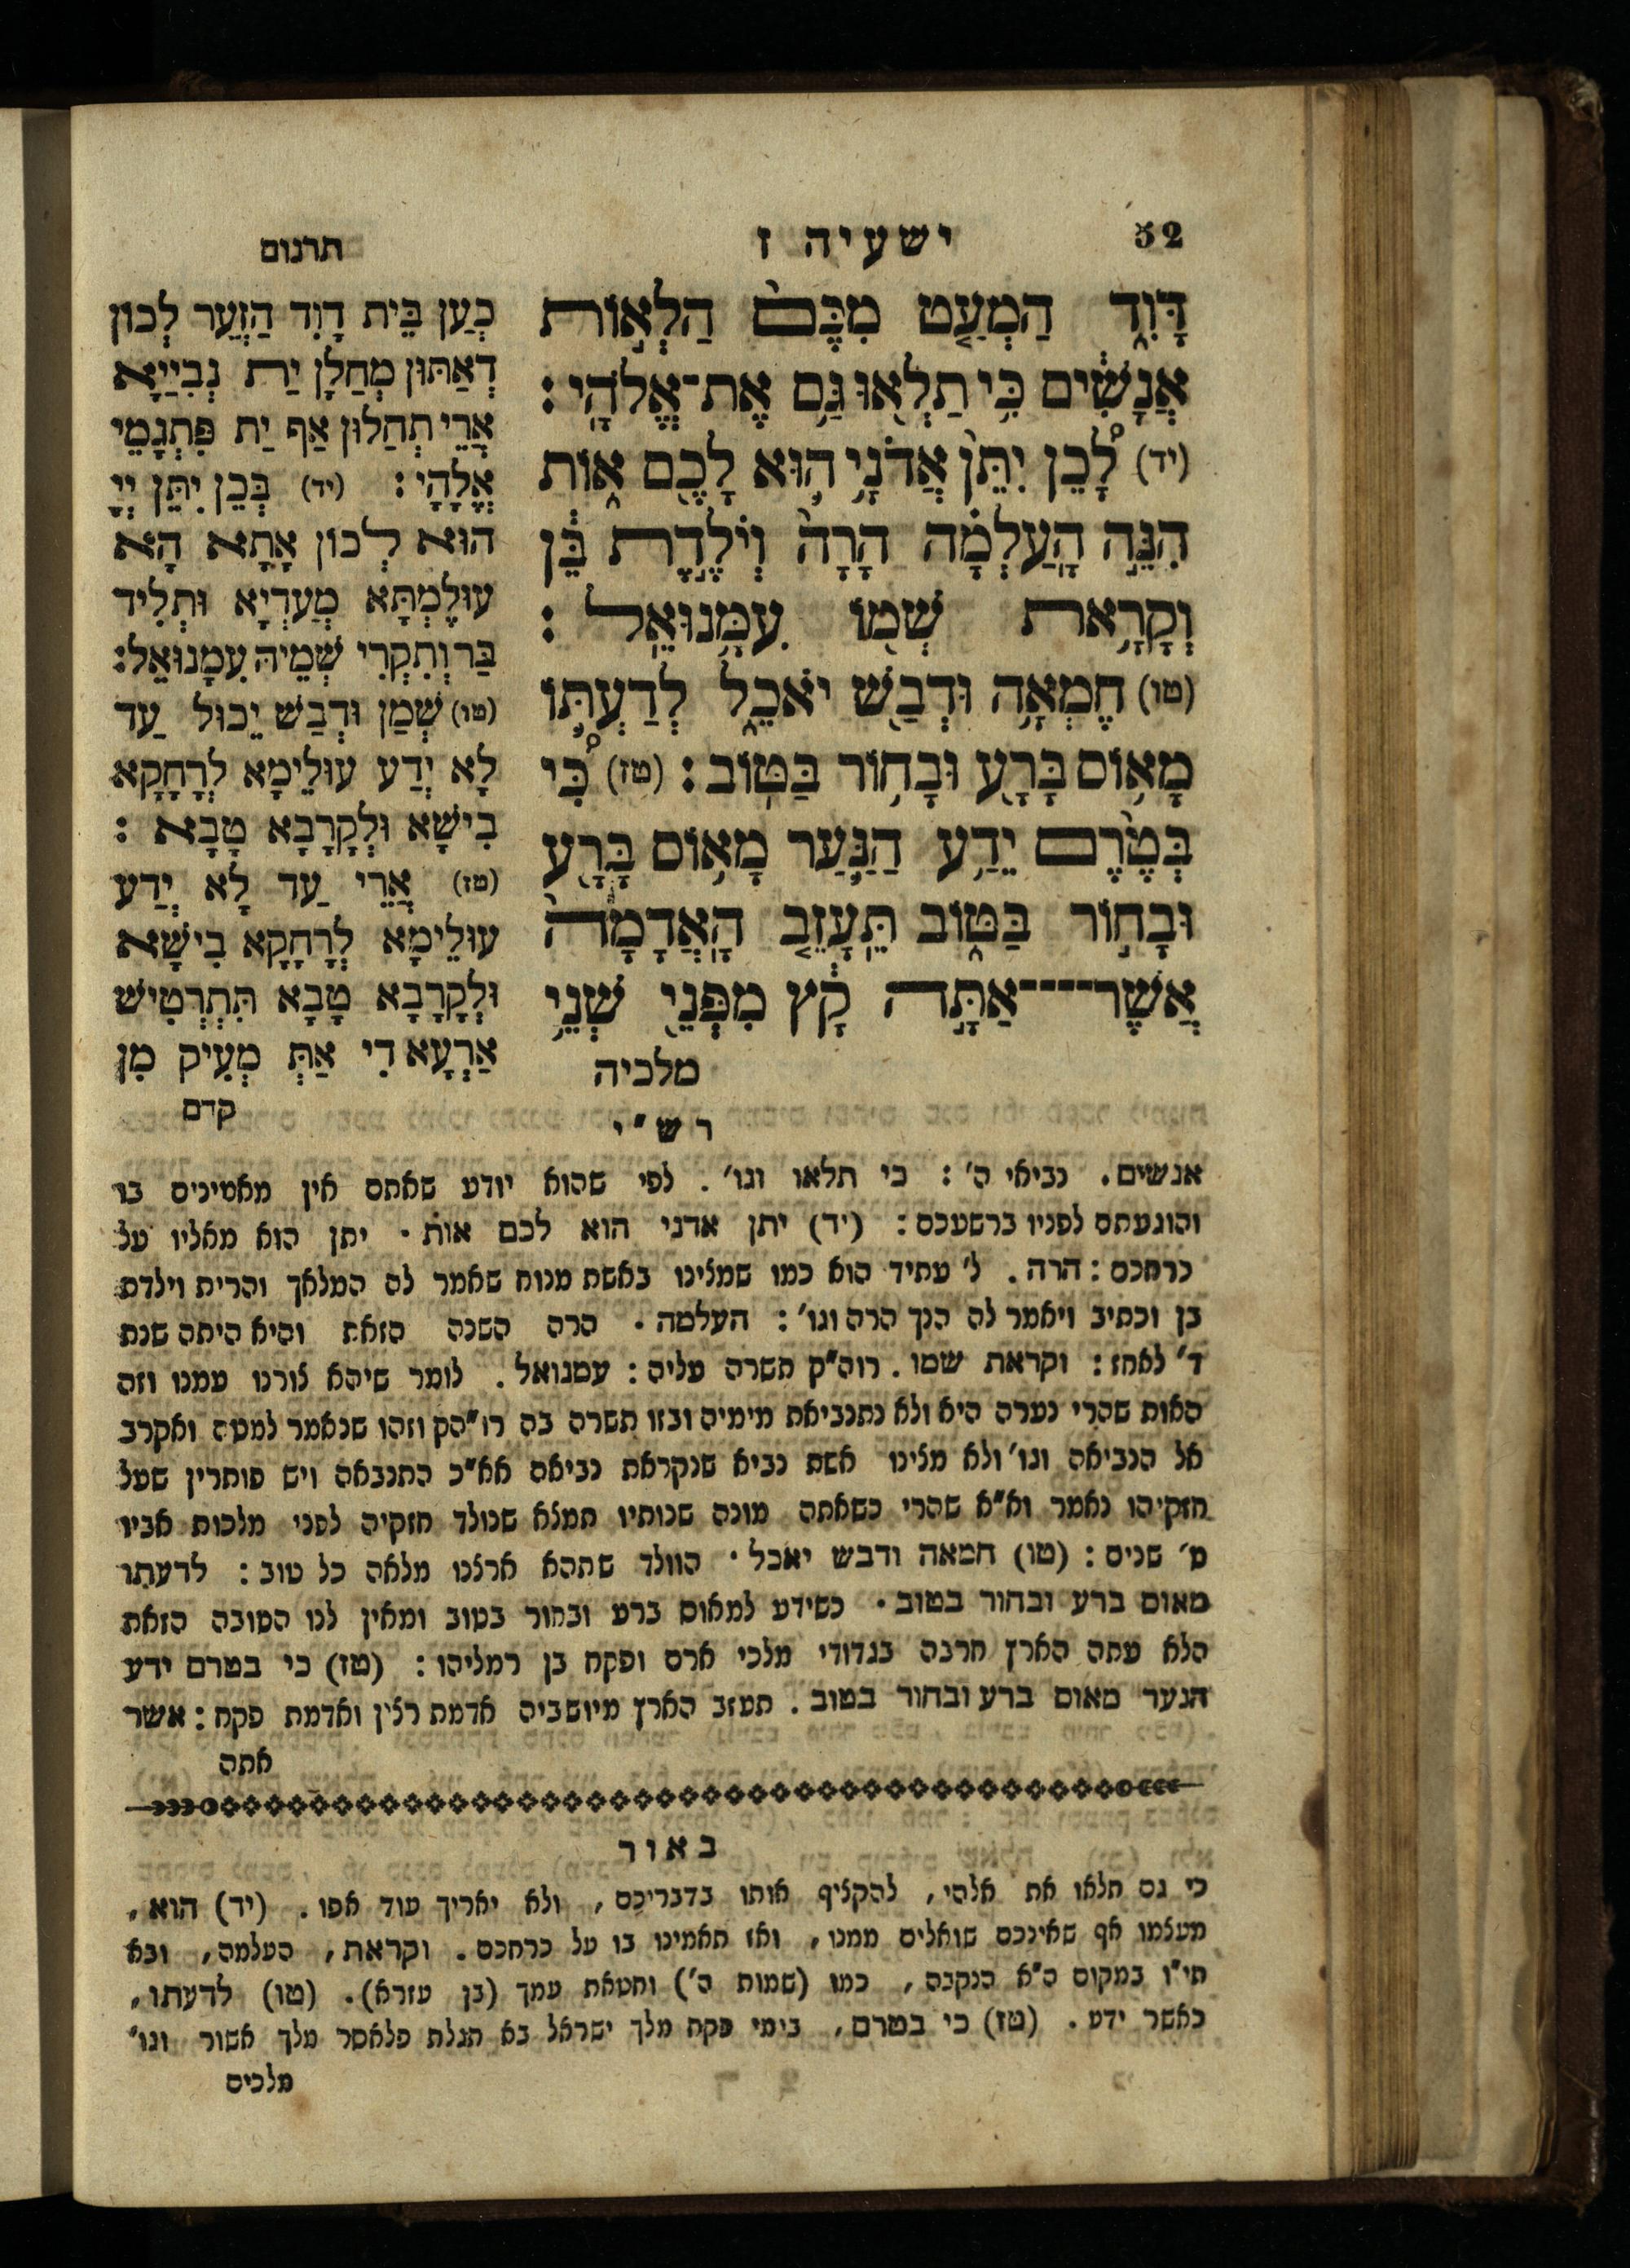 52
ישעיה ז
תרגום
דָּוִ֑ד הַמְעַ֤ט מִכֶּם֙ הַלְא֣וֹת
אֲנָשִׁ֔ים כִּ֥י תַלְא֖וּ גַּ֥ם אֶת־אֱלֹהָֽי׃
(יד) לָ֠כֵן יִתֵּ֨ן אֲדֹנָ֥י ה֛וּא לָכֶ֖ם א֑וֹת
הִנֵּ֣ה הָֽעַלְמָ֗ה הָרָה֙ וְיֹלֶ֣דֶת בֵּ֔ן
וְקָרָ֥את שְׁמ֖וֹ עִמָּ֥נוּאֵֽל׃
(טו) חֶמְאָ֥ה וּדְבַ֖שׁ יֹאכֵ֑ל לְדַעְתּ֛וֹ
מָא֥וֹס בָּרָ֖ע וּבָח֥וֹר בַּטּֽוֹב׃ (טז) כִּ֠י
בְּטֶ֨רֶם יֵדַ֥ע הַנַּ֛עַר מָא֥וֹס בָּרָ֖ע
וּבָח֣וֹר בַּטּ֑וֹב תֵּֽעָזֵ֤ב הָֽאֲדָמָה֙
אֲשֶׁר־־־־אַתָּ֣ה קָ֔ץ מִפְּנֵ֖י שְׁנֵ֥י
מלכיה
כְעַן בֵּית דָוִד הַזְעֵר לְכוֹן
דְאַתּוּן מְחַלָן יַת נְבִיַיָא
אֲרֵי תְחַלוּן אַף יַת פִּתְגָמֵי
אֱלָהָי׃ (יד) בְּכֵן יִתֵּן יְיָ
הוּא לְכוֹן אָתָא הָא
עוּלֶמְתָּא מְעַדְיָא וּתְלִיד
בַּר וְתִקְרֵי שְׁמֵיהּ עִמָנוּאֵל׃
(טו) שְׁמַן וּדְבַשׁ יֵכוּל עַד
לָא יְדַע עוּלֵימָא לְרָחָקָא
בִישָׁא וּלְקָרָבָא טָבָא׃
(טז) אֲרֵי עַד לָא יְדַע
עוּלֵימָא לְרָחָקָא בִישָׁא
וּלְקָרָבָא טָבָא תִּתְרְטִישׁ
אַרְעָא דִי אַתְּ מְעִיק מִן
קדם
רש״י
אנשים. נביאי ה׳: כי תלאו וגו׳. לפי שהוא יודע שאתם אין מאמינים בו
והוגעתם לפניו ברשעכם: (יד) יתן אדני הוא לכם אות. יתן הוא מאליו על
כרחכם: הרה. ל׳ עתיד הוא כמו שמצינו באשת מנוח שאמר לה המלאך והרית וילדת
בן וכתיב ויאמר לה הנך הרה וגו׳: העלמה. הרה השנה הזאת והיא היתה שנת
ד׳ לאחז: וקראת שמו. רוה״ק תשרה עליה: עמנואל. לומר שיהא צורנו עמנו וזה
האות שהרי נערה היא ולא נתנביאת מימיה ובזו תשרה בה רו״הק וזהו שנאמר למטה ואקרב
אל הנביאה וגו׳ ולא מצינו אשת נביא שנקראת נביאה אא״כ התנבאה ויש פותרין שעל
חזקיהו נאמר וא״א שהרי כשאתה מונה שנותיו תמצא שנולד חזקיה לפני מלכות אביו
ט׳ שנים: (טו) חמאה ודבש יאכל. הוולד שתהא ארצנו מלאה כל טוב: לדעתו
מאוס ברע ובחור בטוב. כשידע למאוס ברע ובחור בטוב ומאין לנו הטובה הזאת
הלא עתה הארץ חרבה בגדודי מלכי ארם ופקח בן רמליהו: (טז) כי בטרם ידע
הנער מאוס ברע ובחור בטוב. תעזב הארץ מיושביה אדמת רצין ואדמת פקח: אשר
אתה
באור
כי גם תלאו את אלהי, להקציף אותו בדבריכם, ולא יאריך עוד אפו. (יד) הוא,
מעצמו אף שאינכם שואלים ממנו, ואז תאמינו בו על כרחכם. וקראת, העלמה, ובא
תי״ו במקום ה״א הנקבה, כמו (שמות ה׳) וחטאת עמך (בן עזרא). (טו) לדעתו,
כאשר ידע. (טז) כי בטרם, בימי פקח מלך ישראל בא תגלת פלאסר מלך אשור וגו׳
מלכים